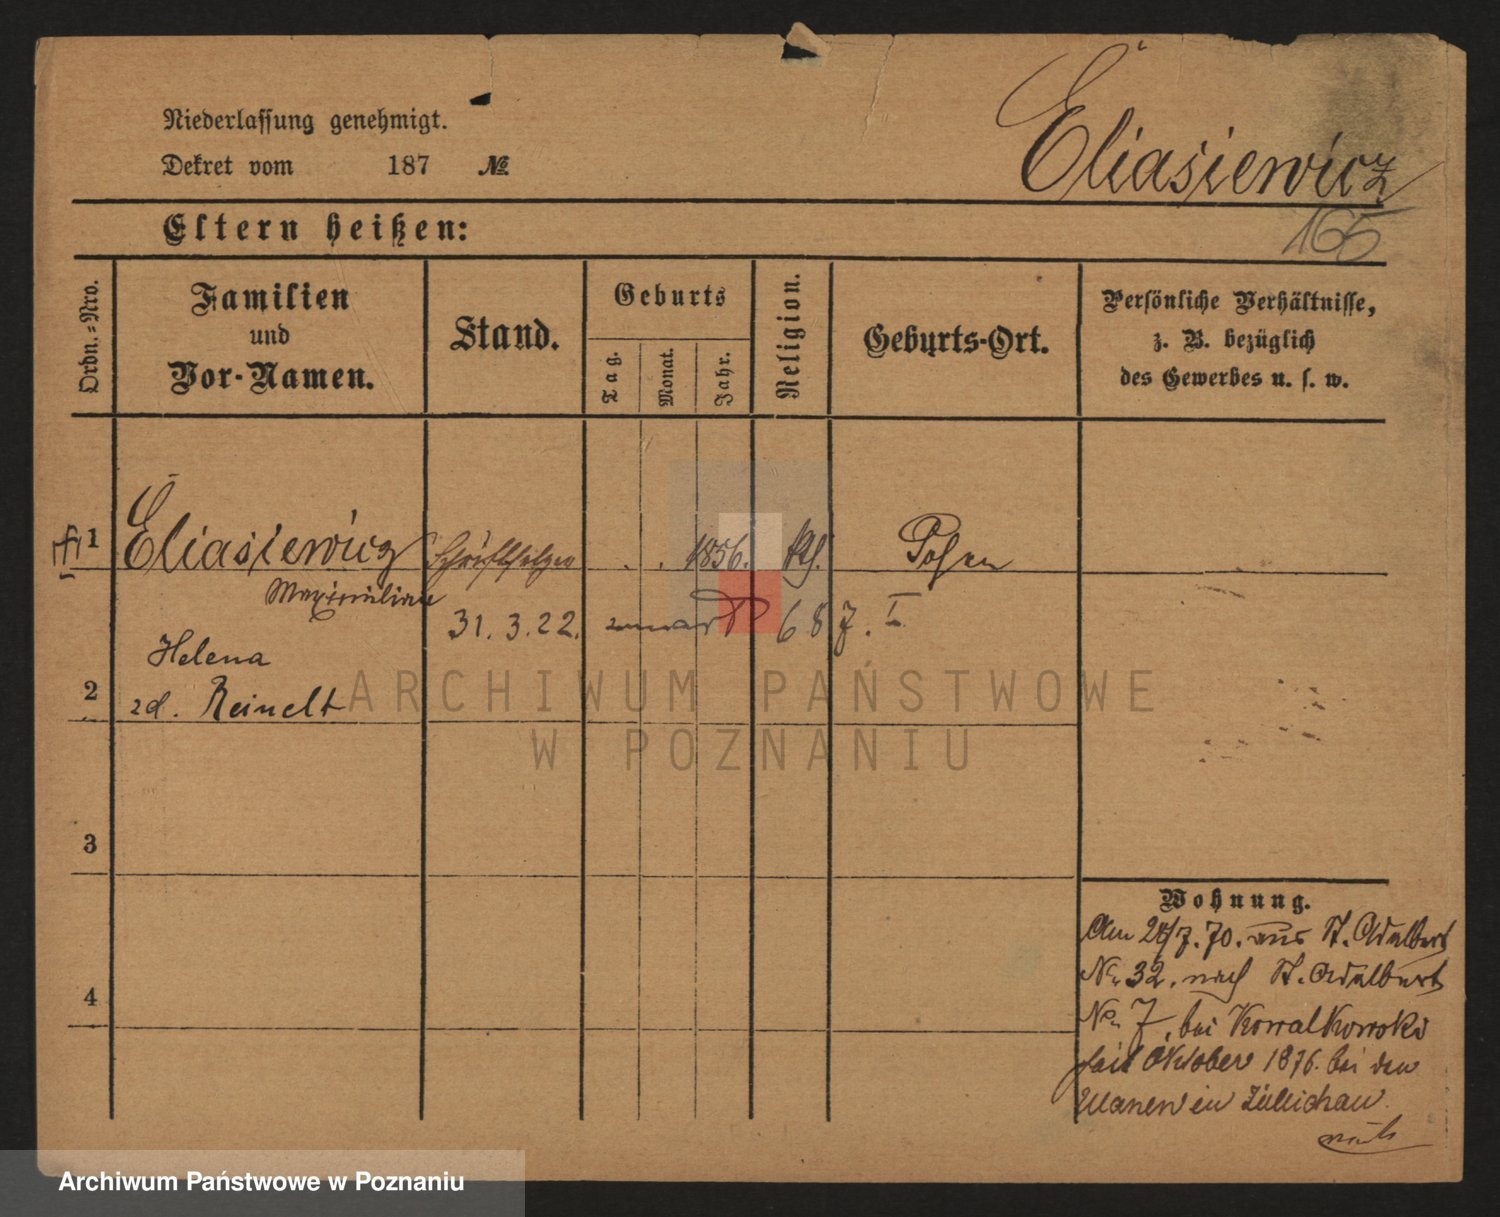 Eliasiewicz
Niederlassung genehmigt.
Dekret vom 187 №
165
Eltern heißen:
Ordn.=Nro.
Familien
und
Vor-Namen.
Stand.
Geburts
Tag.
Monat.
Jahr.
Religion.
Geburts-Ort.
Persönliche Verhältnisse,
z. B. bezüglich
des Gewerbes u. s. w.
1 Eliasiewicz Schriftsetzer . . 1856. kth. Posen
Maximilian
31. 3. 22.
Helena
2 zd. Reinelt
3
4
Wohnung.
Am 28/7. 70. aus St. Adalbert
No 32. nach St. Adalbert
No 7, bei Kowalkowski
seit Oktober 1876. bei den
Ulanen in Züllichau.
ARCHIWUM PAŃSTWOWE
W POZNANIU
Archiwum Państwowe w Poznaniu